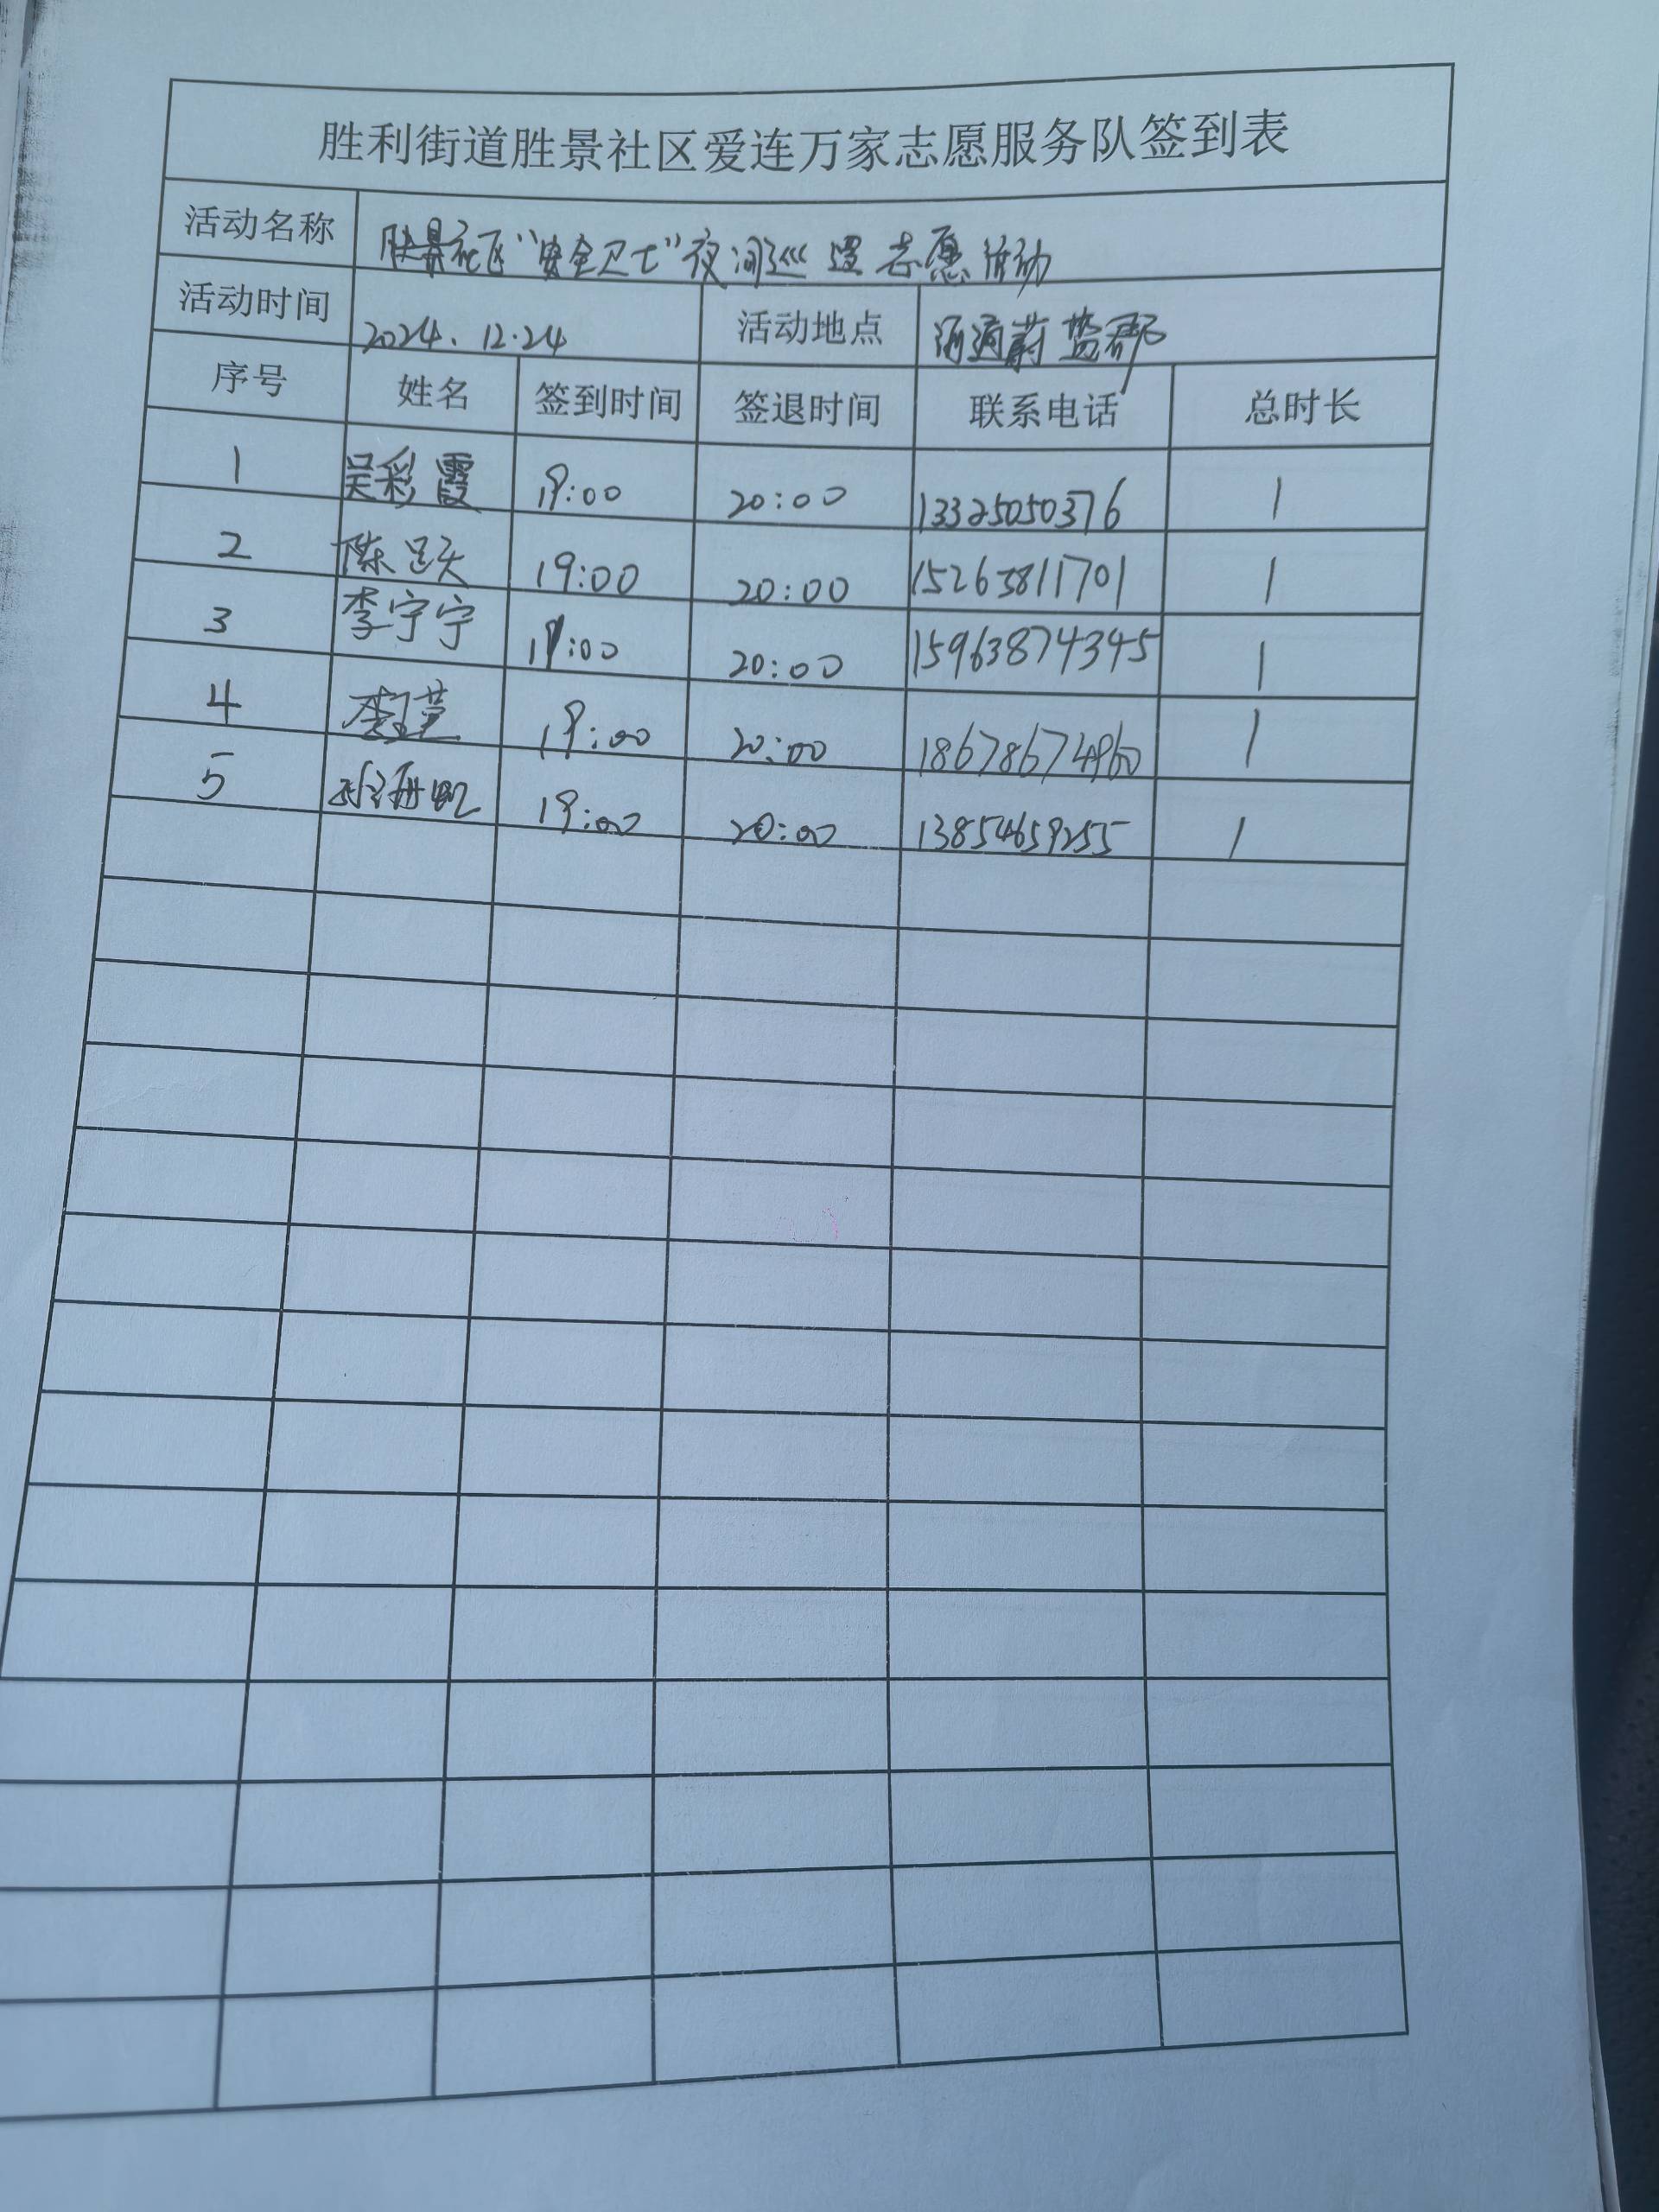 胜利街道胜景社区爱连万家志愿服务队签到表
活动名称 胜景社区“安全卫士”夜间巡逻志愿活动
活动时间 2024.12.24 活动地点 海通蔚蓝郡
序号 姓名 签到时间 签退时间 联系电话 总时长
1 吴彩霞 19:00 20:00 13325050376 1
2 陈跃 19:00 20:00 15263811701 1
3 李宁宁 19:00 20:00 15963874345 1
4 李 19:00 20:00 18678674960 1
5 19:00 20:00 13854659255 1